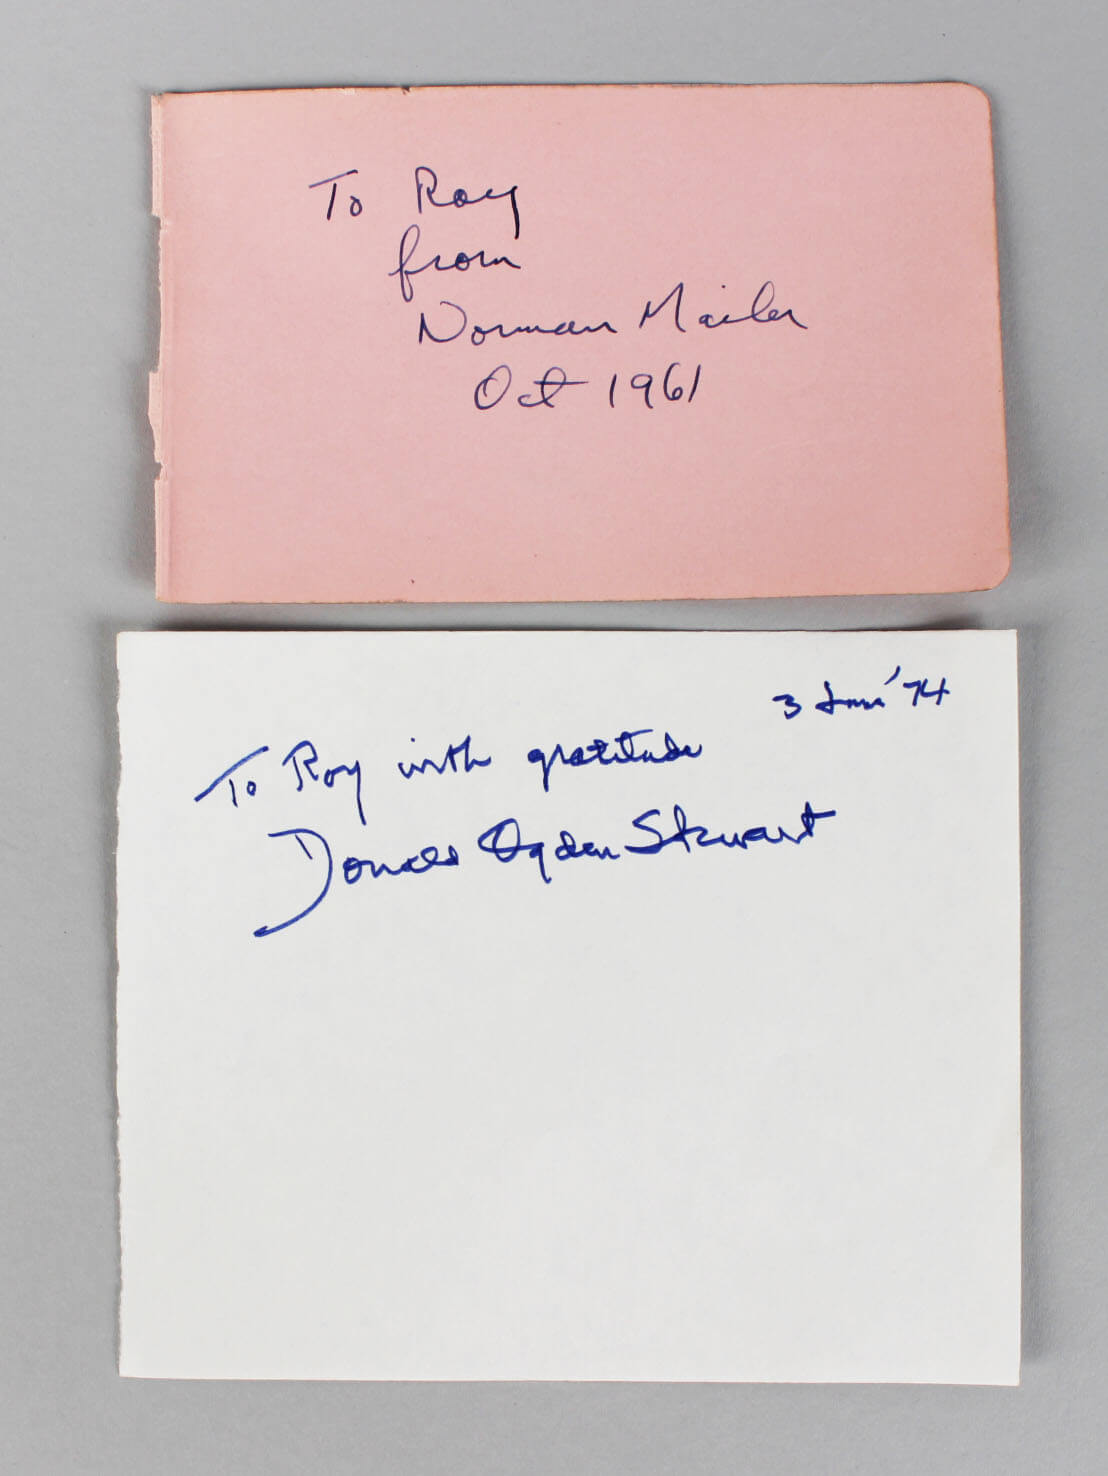 To Roy
from
Norman Mailer
Oct 1961
3 '74
To Roy with gratitude
Donald Ogden Stewart